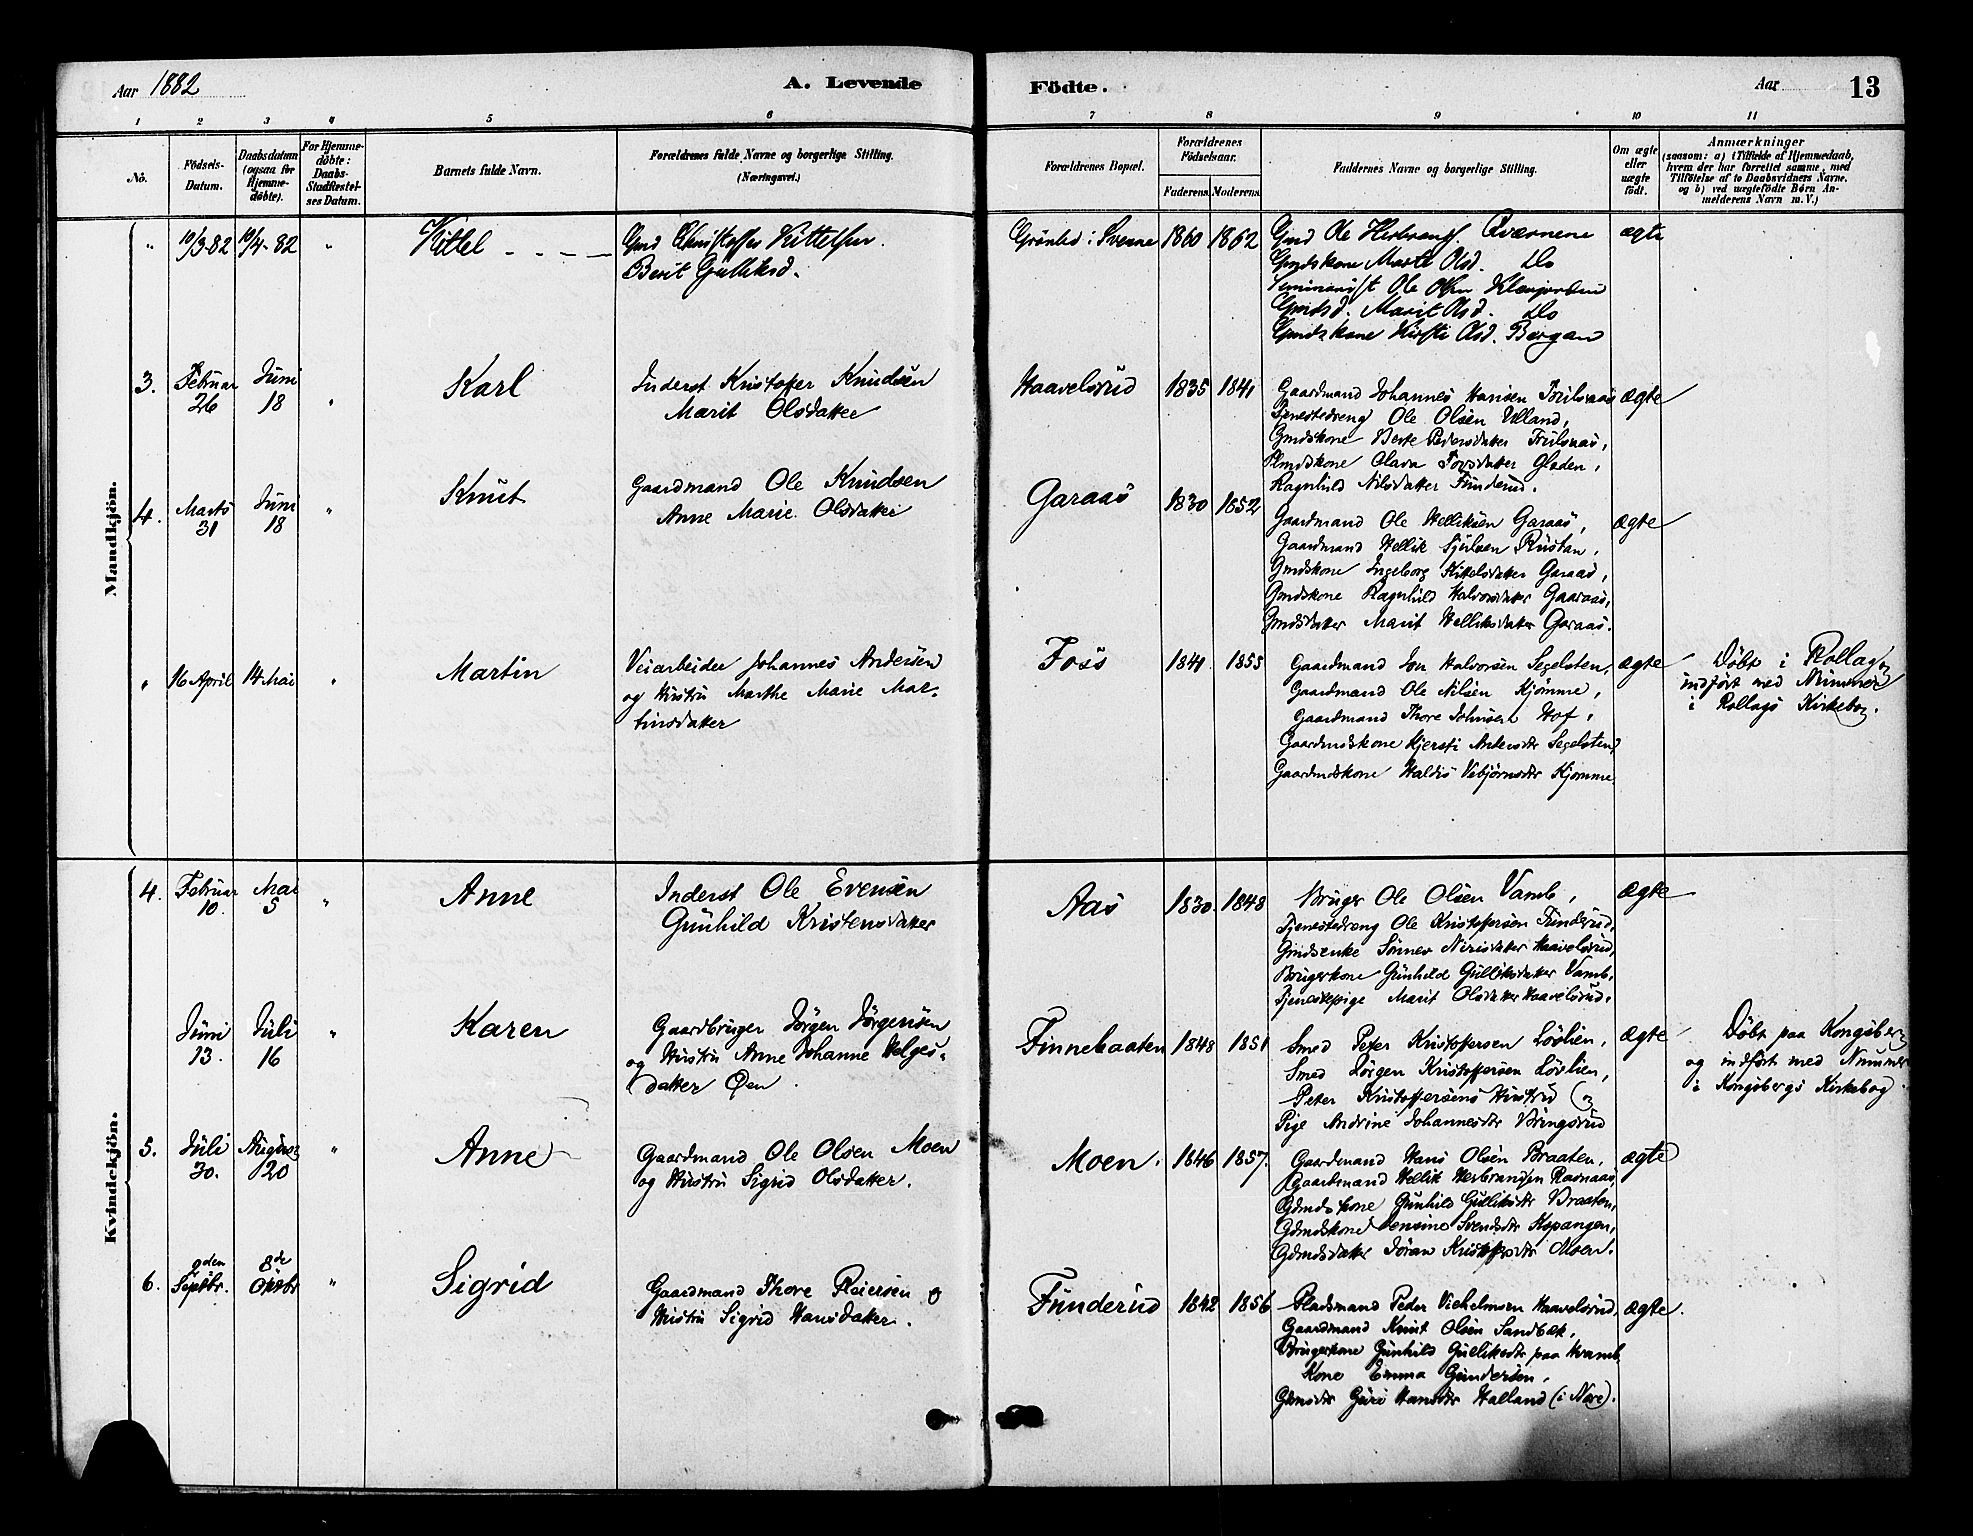 Aar 1882
A. Levende
Födte.
Aar
13
1 2 3 4 5 6 7 8 9 10 11
No.
Födsels-Datum.
Daabsdatum (ogsaa for Hjemme-døbte).
For Hjemme-døbte: Daabs-Stadfæstel-ses Datum.
Barnets fulde Navn.
Forældrenes fulde Navne og borgerlige Stilling.
(Næringsvei.)
Forældrenes Bopæl.
Forældrenes Födselsaar.
Faderens. Moderens.
Faddernes Navne og borgerlige Stilling.
Om ægte eller uægte født.
Anmærkninger
(saasom: a) i Tilfælde af Hjemmedaab,
hvem der har forrettet samme, med
Tilföielse af to Daabsvidners Navne,
og b) ved uægtefödte Börn An-
melderens Navn m. V.)
Mandkjön.
" 10/3-82 10/4-82 " Kittel
Gmd Christoffer Kittelsen.
Berit Gulliksd.
i Svene 1860 1862
Gmd Ole Herbrands. Qværnene
Gmdskone Marte Olsd. Do
Seminarist Ole Olsen
Gmdsd. Marit Olsd. Do
Gmdskone Kirsti Olsd. Bergan
ægte
3. Februar 26 Juni 18 " Karl
Inderst Kristofer Knudsen
Marit Olsdatter
Haavelsrud 1835 1841
Gaardmand Johannes Hansen
Tjenestedreng Ole Olsen Ulland,
Gmdskone Berte Pedersdatter
Plmdskone Olava
Ragnhild Nilsdatter Funderud.
ægte
4. Marts 31 Juni 18 " Knut
Gaardmand Ole Knudsen
Anne Marie Olsdatter
Garaas 1830 1852
Gaardmand Ole Helliksen Garaas,
Gaardmand Hellik Rustan,
Gmdskone Ingeborg Kittelsdatter Garaas,
Gmdskone Ragnhild Halvorsdatter Gaaraas,
Gmdsdatter Marit Helliksdatter Garaas.
ægte
" 16 April 14 Mai " Martin
Veiarbeider Johannes Andersen
og Hustru Marthe Marie Mar-
tinsdatter
Foss 1841. 1855
Gaardmand Jon Halvorsen Segelsten,
Gaardmand Ole Nilsen Kjömme,
Gaardmand Thore Johnsen Hof,
Gaardmdskone Kjersti Andersdtr Segelsten,
Gaardmdskone Haldis Vebjörnsdtr Kjömme
ægte
Döbt i Rollag og
indført med Nummer
i Rollags Kirkebog.
Kvindekjön.
4. Februar 10. Mai 5 " Anne
Inderst Ole Evensen
Gunhild Kristensdatter
Aas 1830. 1848
Bruger Ole Olsen Vamb,
Tjenestedreng Ole Kristoffersen Funderud,
Gmdsenke Haavelsrud,
Brugerkone Gunhild Gulliksdatter Vamb,
Tjenestepige Marit Olsdatter Haavelsrud.
ægte
Juni 13. Juli 16 " Karen
Gaardbruger Jörgen Jörgensen
og Hustru Anne Johanne Helges-
datter Öen.
Finnebraaten 1848 1851
Smed Peter Kristoffersen Lövlien,
Smed Jörgen Kristoffersen Lövlien,
Peter Kristoffersens Hustru og
Pige Andrine Johannesdtr Bringsrud
ægte
Döbt paa Kongsberg
og indført med Nummer
i Kongsbergs Kirkebog.
5. Juli 30. August 20 " Anne
Gaardmand Ole Olsen Moen
og Hustru Sigrid Olsdatter.
Moen. 1846 1857.
Gaardmand Hans Olsen Braaten,
Gaardmand Hellik Herbrandsen Ravnaas,
Gdmdskone Gunhild Gulliksdtr Braaten,
Gdmdskone Jensine Svendsdtr Kopangen,
Gdmdsdatter Jöran Kristoffersdtr Moen.
ægte
6. 9den Septbr. 8de Oktbr " Sigrid
Gaardmand Thore Reiersen og
Hustru Sigrid Hansdatter.
Funderud 1842 1856
Pladsmand Peder Vilhelmsen Haavelsrud,
Gaardmand Knut Olsen Sandbæk,
Brugerkone Gunhild Gulliksdtr paa Kvamb
Kone Emma Gundersen,
Gdmsdtr Guri Hansdtr Halland (i Nore).
ægte.